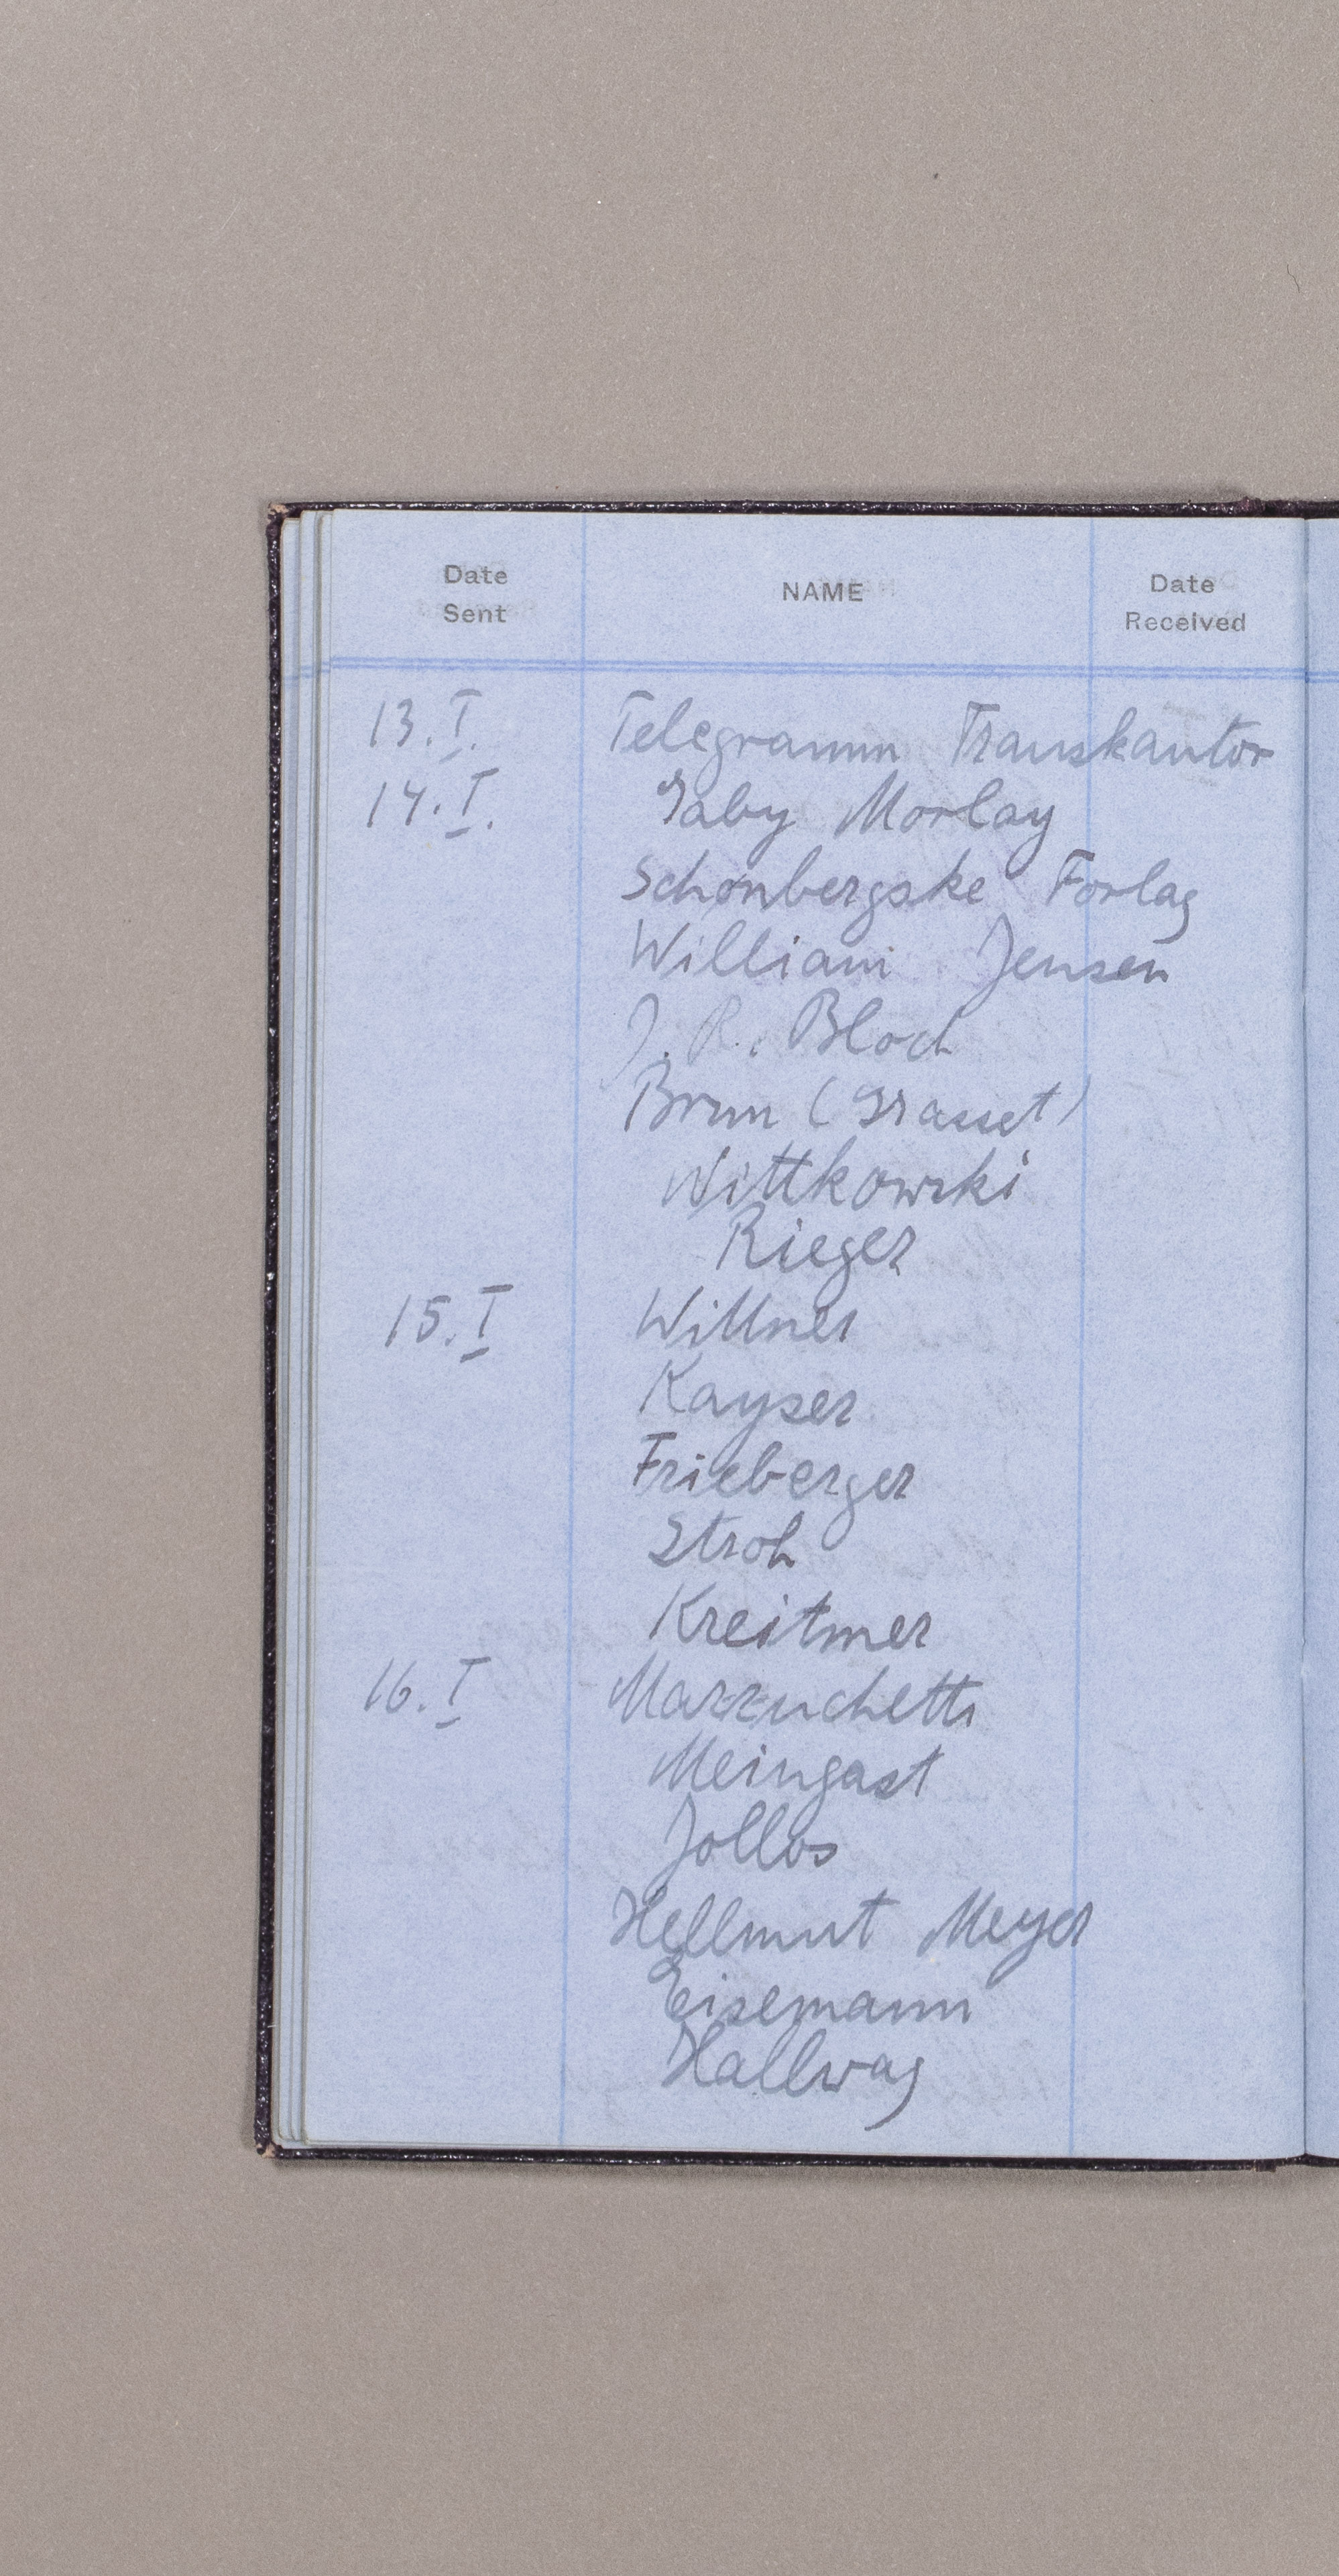 Date Sent NAME Date Received
13.I. Telegramm Transkantor
14.I. Gaby Morlay
Schönbergske Forlag
William Jensen
J. R. Bloch
Brun (Grasset)
Wittkowski
Rieger
15.I Wittner
Kayser
Frieberger
Stroh
Kreitmer
16.I Mazzuchetti
Meingast
Jollos
Hellmut Meyer
Eisemann
Hallwag